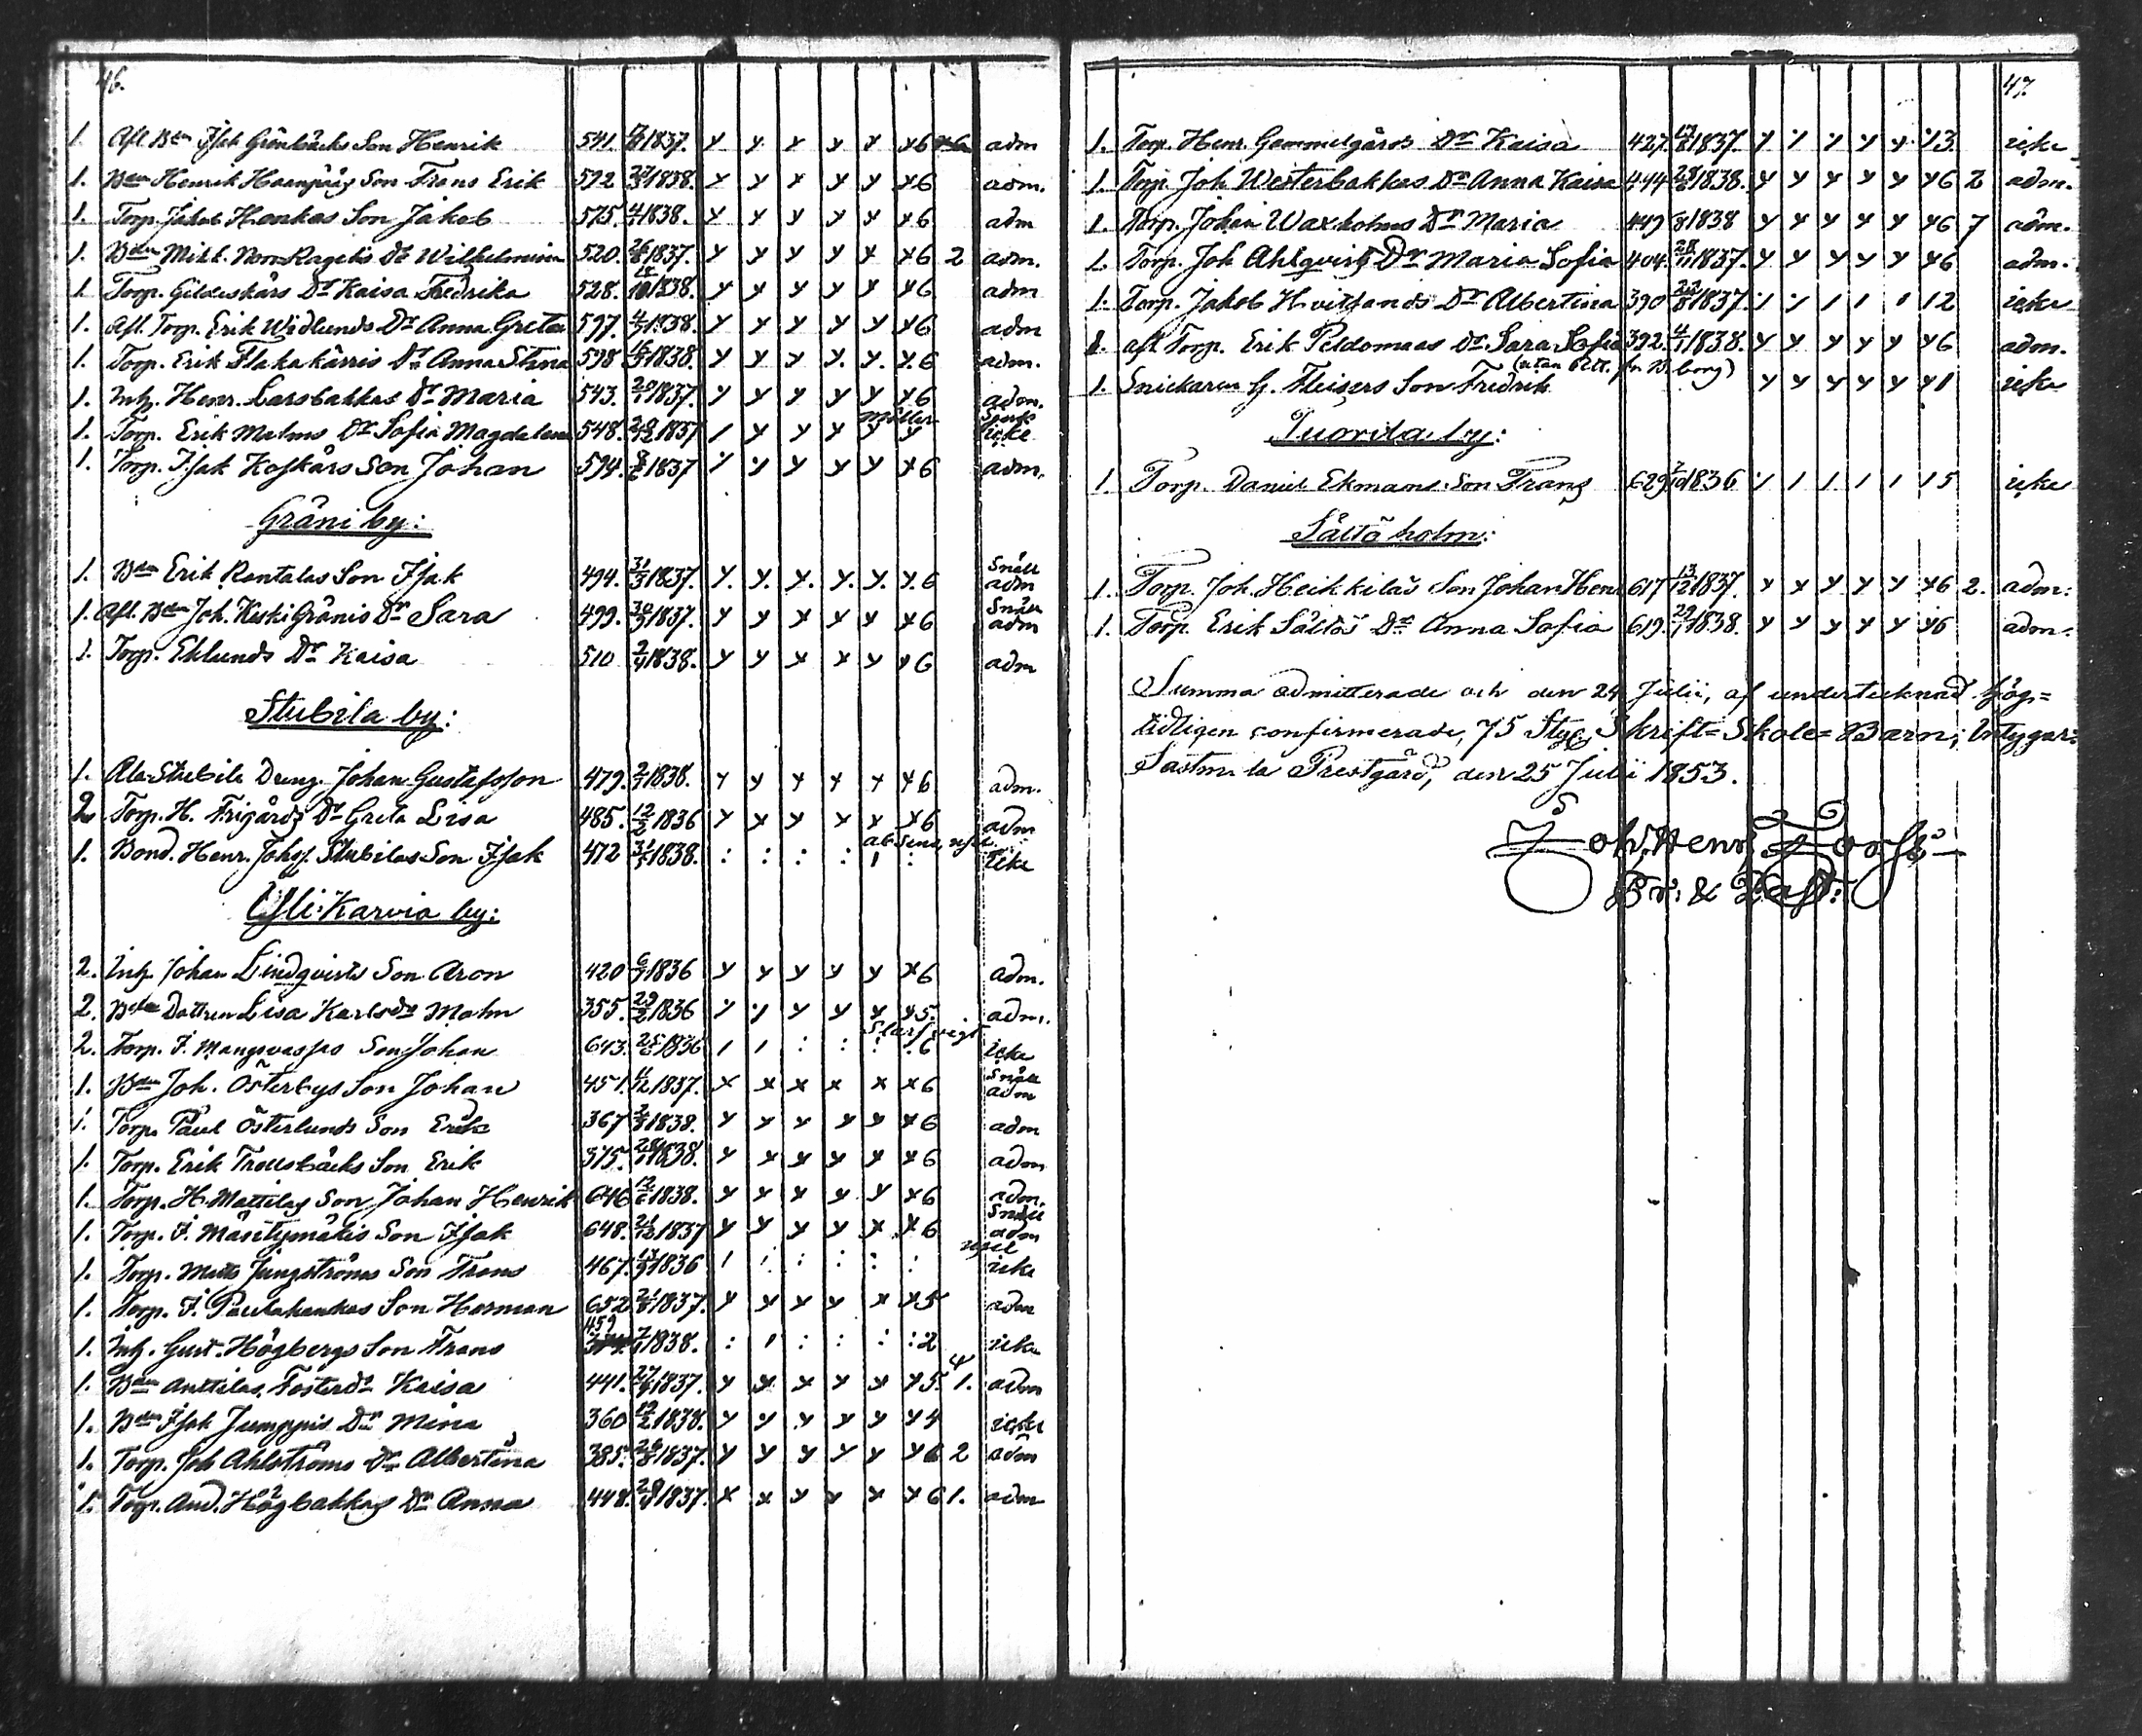 46.
1. Afl. Bdn Isak Grönbäcks Son Henrik 541. 1837. y y y y y y6 adm
1. Bdn Henrik Haanpääs Son Frans Erik 592 1838. y y x y y y6 adm.
1. Torp. Jakob Hankas Son Jakob 575. 1838. y y y y y y6 adm
1. Bdn Mikl. Norr Ragels Dr Wilhelmina 520. 26/8 1837. y y y y y y6 2 adm.
1. Torp. Gildeskärs Dr Kaisa Fredrika 528. 1838. y y y y y y6 adm
1. Afl. Torp. Erik Widlunds Dr Anna Greta 597. 1838. y y y y y y6 adm
1. Torp. Erik Flakakärris Dr Anna Stina 598 1838. y y y y y y6 adm.
1. Inh. Henr. Larsbackas Dr Maria 543. 1837. y y y y y y6 adm.
1. Torp. Erik Malms Dr Sofia Magdalena 548. 1837 1 y y y y y icke
1. Torp. Isak Koskärs Son Johan 594. 1837 y y y y y y6 adm.
Gråni by:
1. Bdn Erik Rantalas Son Isak 494. 31/3 1837. y. y. y. y. y. y.6 Snäll adm
1. Afl. Bdn Joh. Keski Grånis Dr Sara 499. 30/3 1837. y y y y y y6 Snäll adm
1. Torp. Eklunds Dr Kaisa 510 1838. y y x x y y6 adm
Stubila by:
1. Ala Stubila Dreng. Johan Gustafsson 479. 1838. y y y y y y6 adm.
2. Torp. H. Frigårds Dr Greta Lisa 485. 12/2 1836 y y y y y y6 adm
1. Bond. Henr. Johss. Stubilas Son Isak 472 1838. : : : : 1 : icke
Yli-Karvia by:
2. Inh Johan Lindqvists Son Aron 420 1836 y y y y y x6 adm.
2. Bdn Dottren Lisa Karlsdr Malm 355. 29/2 1836 y y y y y y5. adm.
2. Torp. J. Mangvasjas Son Johan 643. 1836 1 1 : : : :6 icke
1. Bdn Joh. Österbys Son Johan 451. 1837. x x x x x x6 Snäll adm
1. Torp. Paul Österlunds Son Erik 367 1838. y y y y y y6 adm
1. Torp. Erik Trollsbäcks Son Erik 375. 1838. y y y y y y6 adm
1. Torp. H. Mattilas Son Johan Henrik 646 1838. y y x y y x6 adm.
1. Torp. J. Mäntymäkis Son Isak 648. 21/12 1837 y y y y x x6 Snäll adm
1. Torp. Matts Ljungströms Son Frans 467. 1836 1 : : : : : icke
1. Torp. J. Paulahankas Son Herman 652 1837. y y y y x y5 adm
1. Inh. Gust. Högbergs Son Frans 459 1838. : 1 : : : :2 icke
1. Bdn Anttilas, Fosterdr Kaisa 441. 1837. y y x y y y5. 1. adm
1. Bdn Isak Jumppis Dr Mina 360 1838. y y y y y y4 icke
1. Torp. Joh Ahlströms Dr Albertina 385. 1837. y y y y y y6 2 adm
1. Torp. And. Högbackas Dr Anna 448. 1837. x x y y y y6 1. adm
47.
1. Torp. Henr. Gammelgårds Dr Kaisa 427. 1837. y 1 1 y y 3. icke
1. Torp. Joh Westerbackas Dr Anna Kaisa 444 1838. y y y y y y6 2 adm.
1. Torp. Johan Waxholms Dr Maria 449 1838 y y y y y y6 7 adm.
1. Torp. Joh Ahlqvists Dr Maria Sofia 404. 28/11 1837. y y y y y y6 adm.
1. Torp. Jakob Hvitsands Dr Albertina 390 1837. : : 1 1 1 12 icke
1. afl Torp. Erik Peldomaas Dr Sara Sofia 392. 4/1 1838. y y y y y y6 adm.
1. Snickaren G. Fleisers Son Fredrik (utan attt. fr. B.borg) y y y y y y1 icke
Tuorila by:
1. Torp. Daniel Ekmans Son Frans 629 1836 : 1 1 1 1 15 icke
Sälttö holm:
1. Torp. Joh. Heikkiläs Son Johan Henr 617 13/12 1837. y x y y y y6 2. adm.
1. Torp Erik Sälttös Dr Anna Sofia 619. 29/1 1838. y y y y y y6 adm.
Summa admitterade och den 24 Julii, af undertecknad hög=
tidligen confirmerade, 75 Styck Skrift=Skole=Barn; Intygar:
Sastmola Prestgård, den 25 Julii 1853.
Joh. Henr.
Pr: & Past: